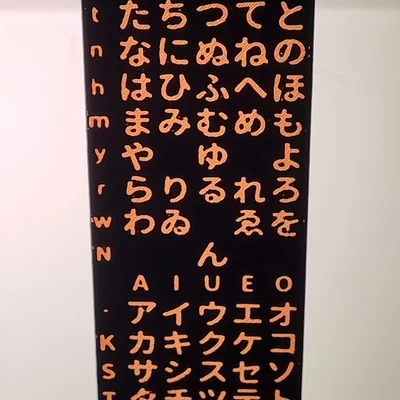 t たちつてと
n なにぬねの
h はひふへほ
m まみむめも
y やゆよ
r らりるれろ
w わゐゑを
N ん
A I U E O
・ アイウエオ
K カキクケコ
S サシスセソ
T タチツテト